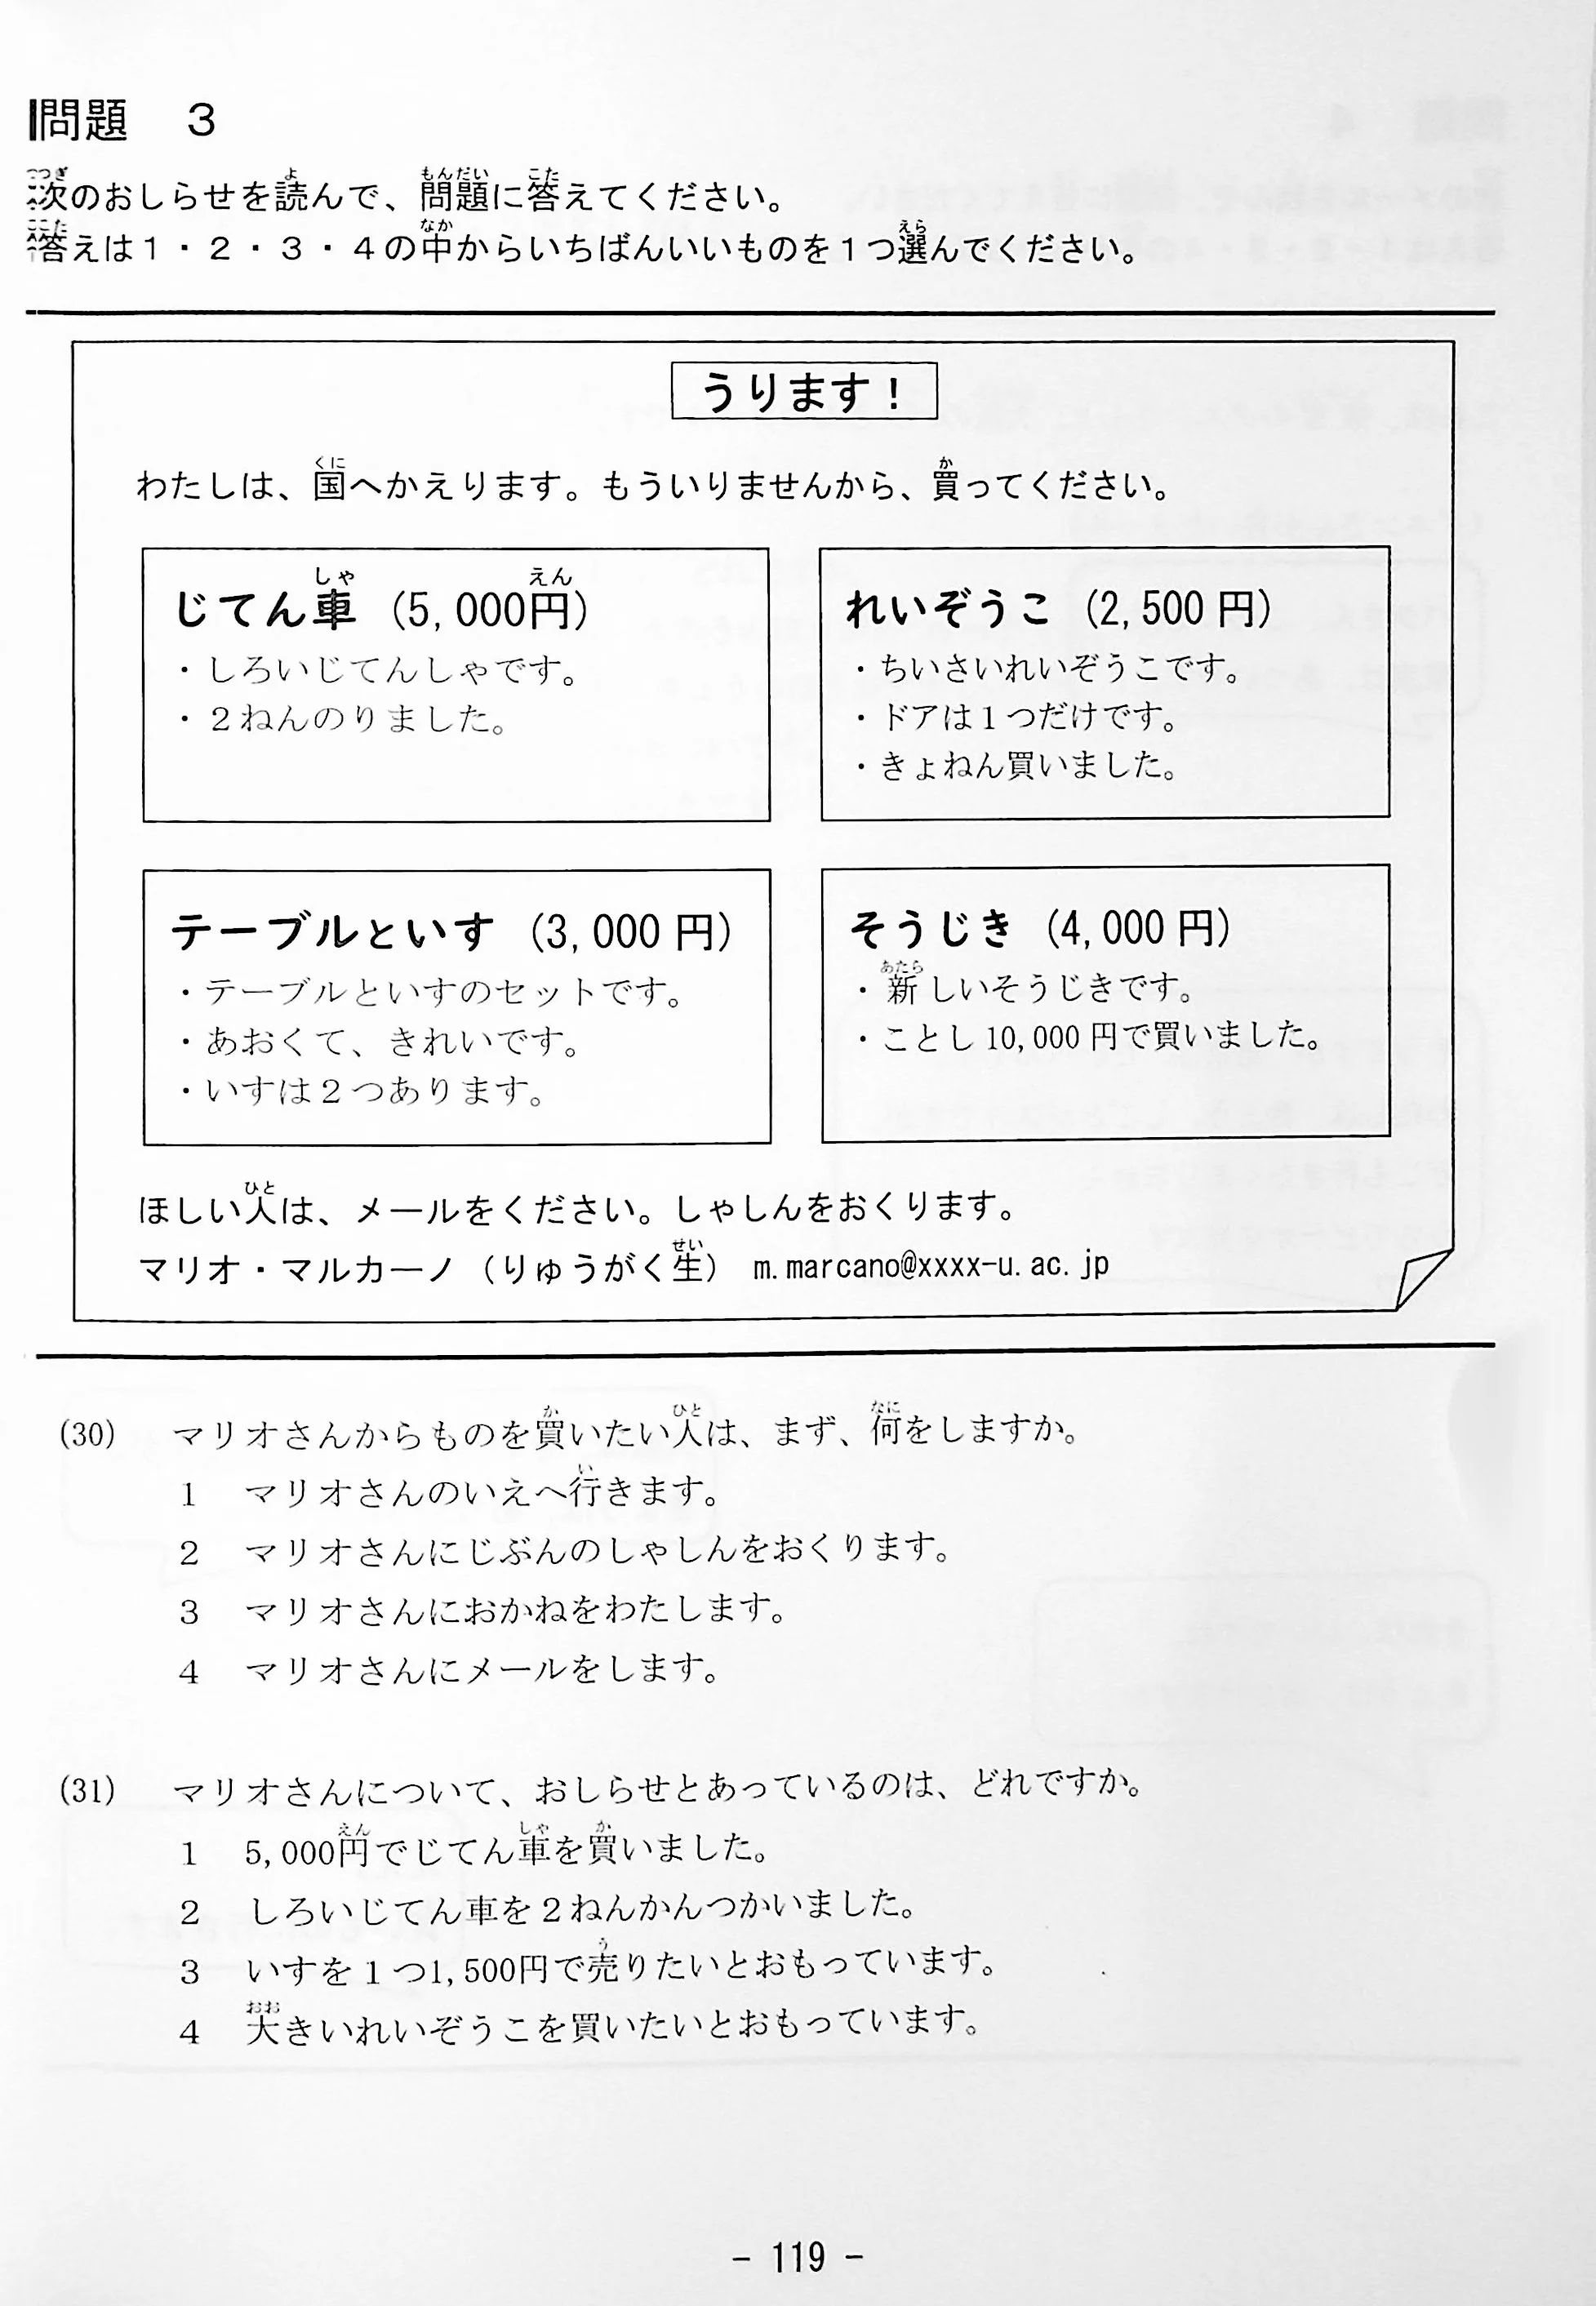 問題　３
次のおしらせを読んで、問題に答えてください。
答えは１・２・３・４の中からいちばんいいものを１つ選んでください。
うります！
わたしは、国へかえります。もういりませんから、買ってください。
じてん車（5,000円）
・しろいじてんしゃです。
・２ねんのりました。
れいぞうこ（2,500円）
・ちいさいれいぞうこです。
・ドアは１つだけです。
・きょねん買いました。
テーブルといす（3,000円）
・テーブルといすのセットです。
・あおくて、きれいです。
・いすは２つあります。
そうじき（4,000円）
・新しいそうじきです。
・ことし10,000円で買いました。
ほしい人は、メールをください。しゃしんをおくります。
マリオ・マルカーノ（りゅうがく生）　m.marcano@xxxx-u.ac.jp
(30)　マリオさんからものを買いたい人は、まず、何をしますか。
1　マリオさんのいえへ行きます。
2　マリオさんにじぶんのしゃしんをおくります。
3　マリオさんにおかねをわたします。
4　マリオさんにメールをします。
(31)　マリオさんについて、おしらせとあっているのは、どれですか。
1　5,000円でじてん車を買いました。
2　しろいじてん車を２ねんかんつかいました。
3　いすを１つ1,500円で売りたいとおもっています。
4　大きいれいぞうこを買いたいとおもっています。
- 119 -